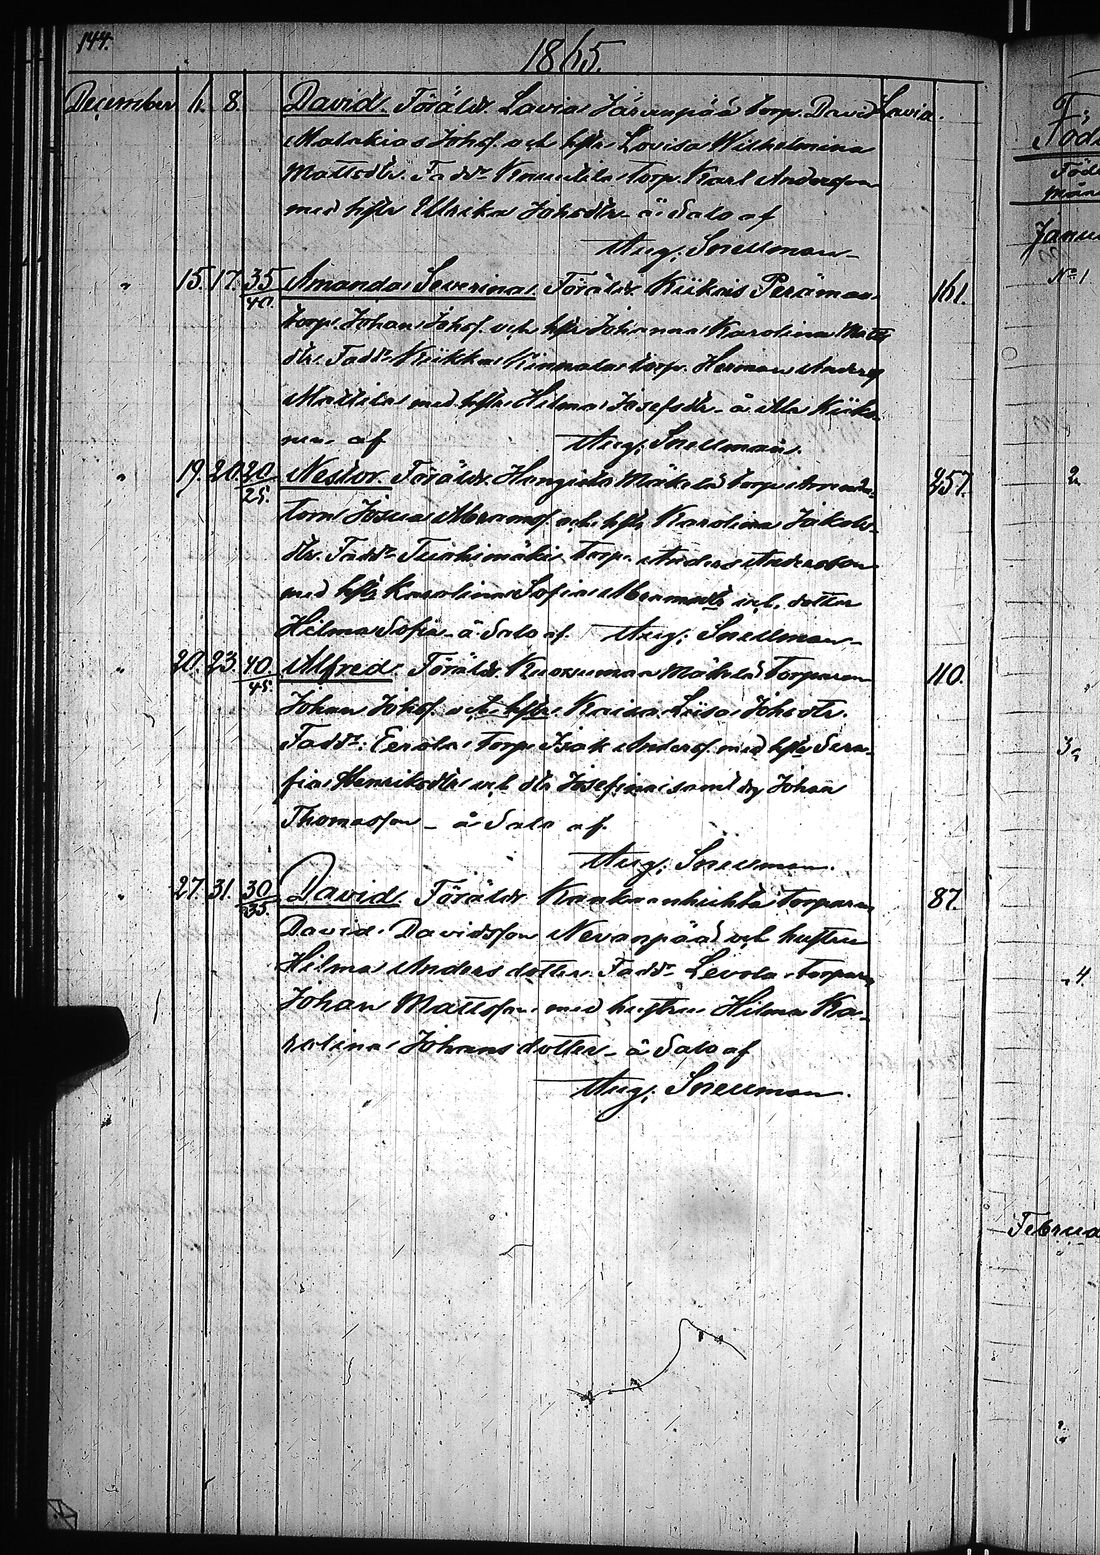 144.
1865.
December 6. 8. David. Föräldr. Lavia Järvenpää torp. David Lavia.
Malakias Johsf. och hstr Lovisa Wilhelmina
Mattsdtr. Faddr torp. Karl Andersson
med hstr Ulrika Johsdtr å Salo af
Aug. Snellman
" 15. 17. 35/40. Amanda Severina. Föräldr. Kiikois Perämaa 161.
torp. Johan Johsf. och hstr Johanna Karolina Matts
dtr. Faddr Kiikka torp. Herman Andersf
Mattila med hstr Hilma Josefsdtr å
af Aug. Snellman.
" 19. 20. 20/25. Nestor. Föräldr. Mäkelä torp. 257.
Josua Abramsf. och hstr Karolina Jakobs-
dtr. Faddr torp. Anders Andersson
med hstr Karolina Sofia Abramsdtr och dotter
Hilma Sofia å Salo af Aug. Snellman
" 20. 23. 40/45. Alfred. Föräldr. Kuorsumaa Mäkelä Torparen 110.
Johan Johsf. och hstr. Kaisa Liisa Johsdtr.
Faddr. Eerola torp. Isak Andersf. med hstr Sera-
fia Henriksdtr och dtr Josefina samt dg Johan
Thomasson å Salo af.
Aug. Snellman.
" 27. 31. 30/35. David. Föräldr. Torparen 87.
David Davidsson Nevanpää och hustru
Hilma Anders dotter. Faddr Levola torparen
Johan Mattsson med hustru Hilma Ka-
rolina Johans dotter å Salo af
Aug. Snellman.
Föd
Föde
mån
Janu
No 1
2
3
4.
Februa